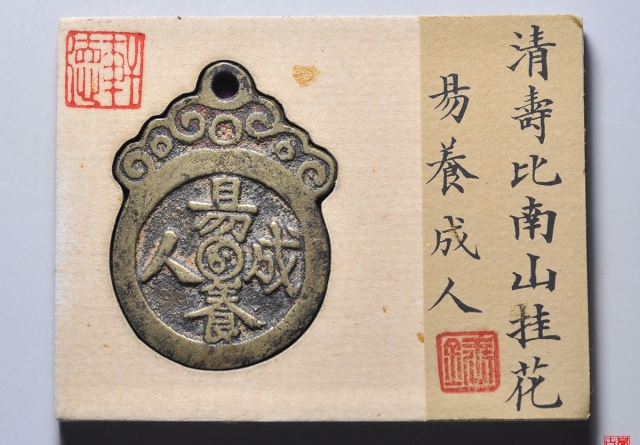 清壽比南山挂花
易養成人
易養成人